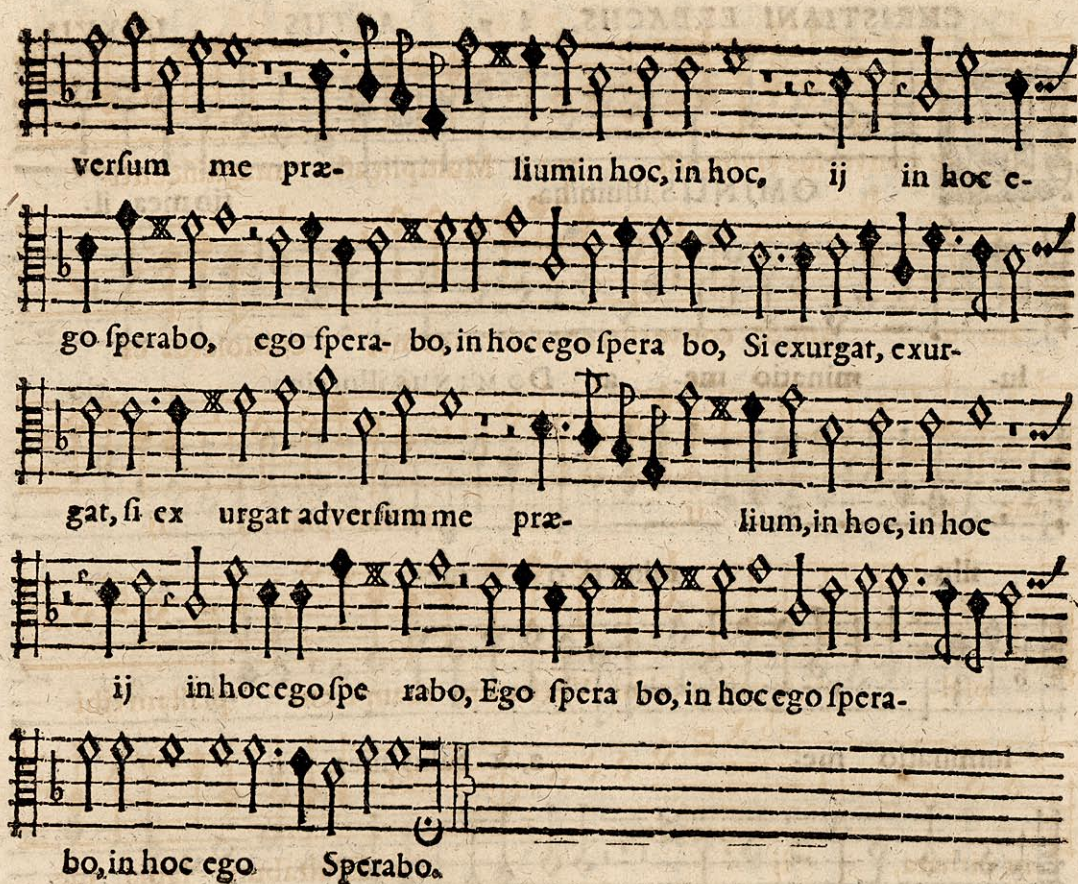 verſum me præ- liumin hoc, in hoc, ij in hoc e-
go ſperabo, ego ſpera- bo, in hoc ego ſpera bo, Si exurgat, exur-
gat, ſi ex urgat adverſum me præ- lium, in hoc, in hoc
ij in hoc ego ſpe rabo, Ego ſpera bo, in hoc ego ſpera-
bo, in hoc ego Sperabo.